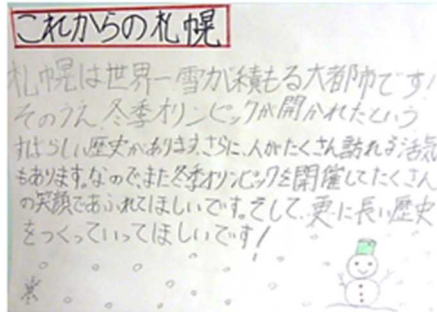 これからの札幌
札幌は世界一雪が積もる大都市です!
そのうえ冬季オリンピックが開かれたという
すばらしい歴史があります。さらに、人がたくさん訪れる活気
もあります。なので、また冬季オリンピックを開催してたくさん
の笑顔であふれてほしいです。そして、更に長い歴史
をつくっていってほしいです!